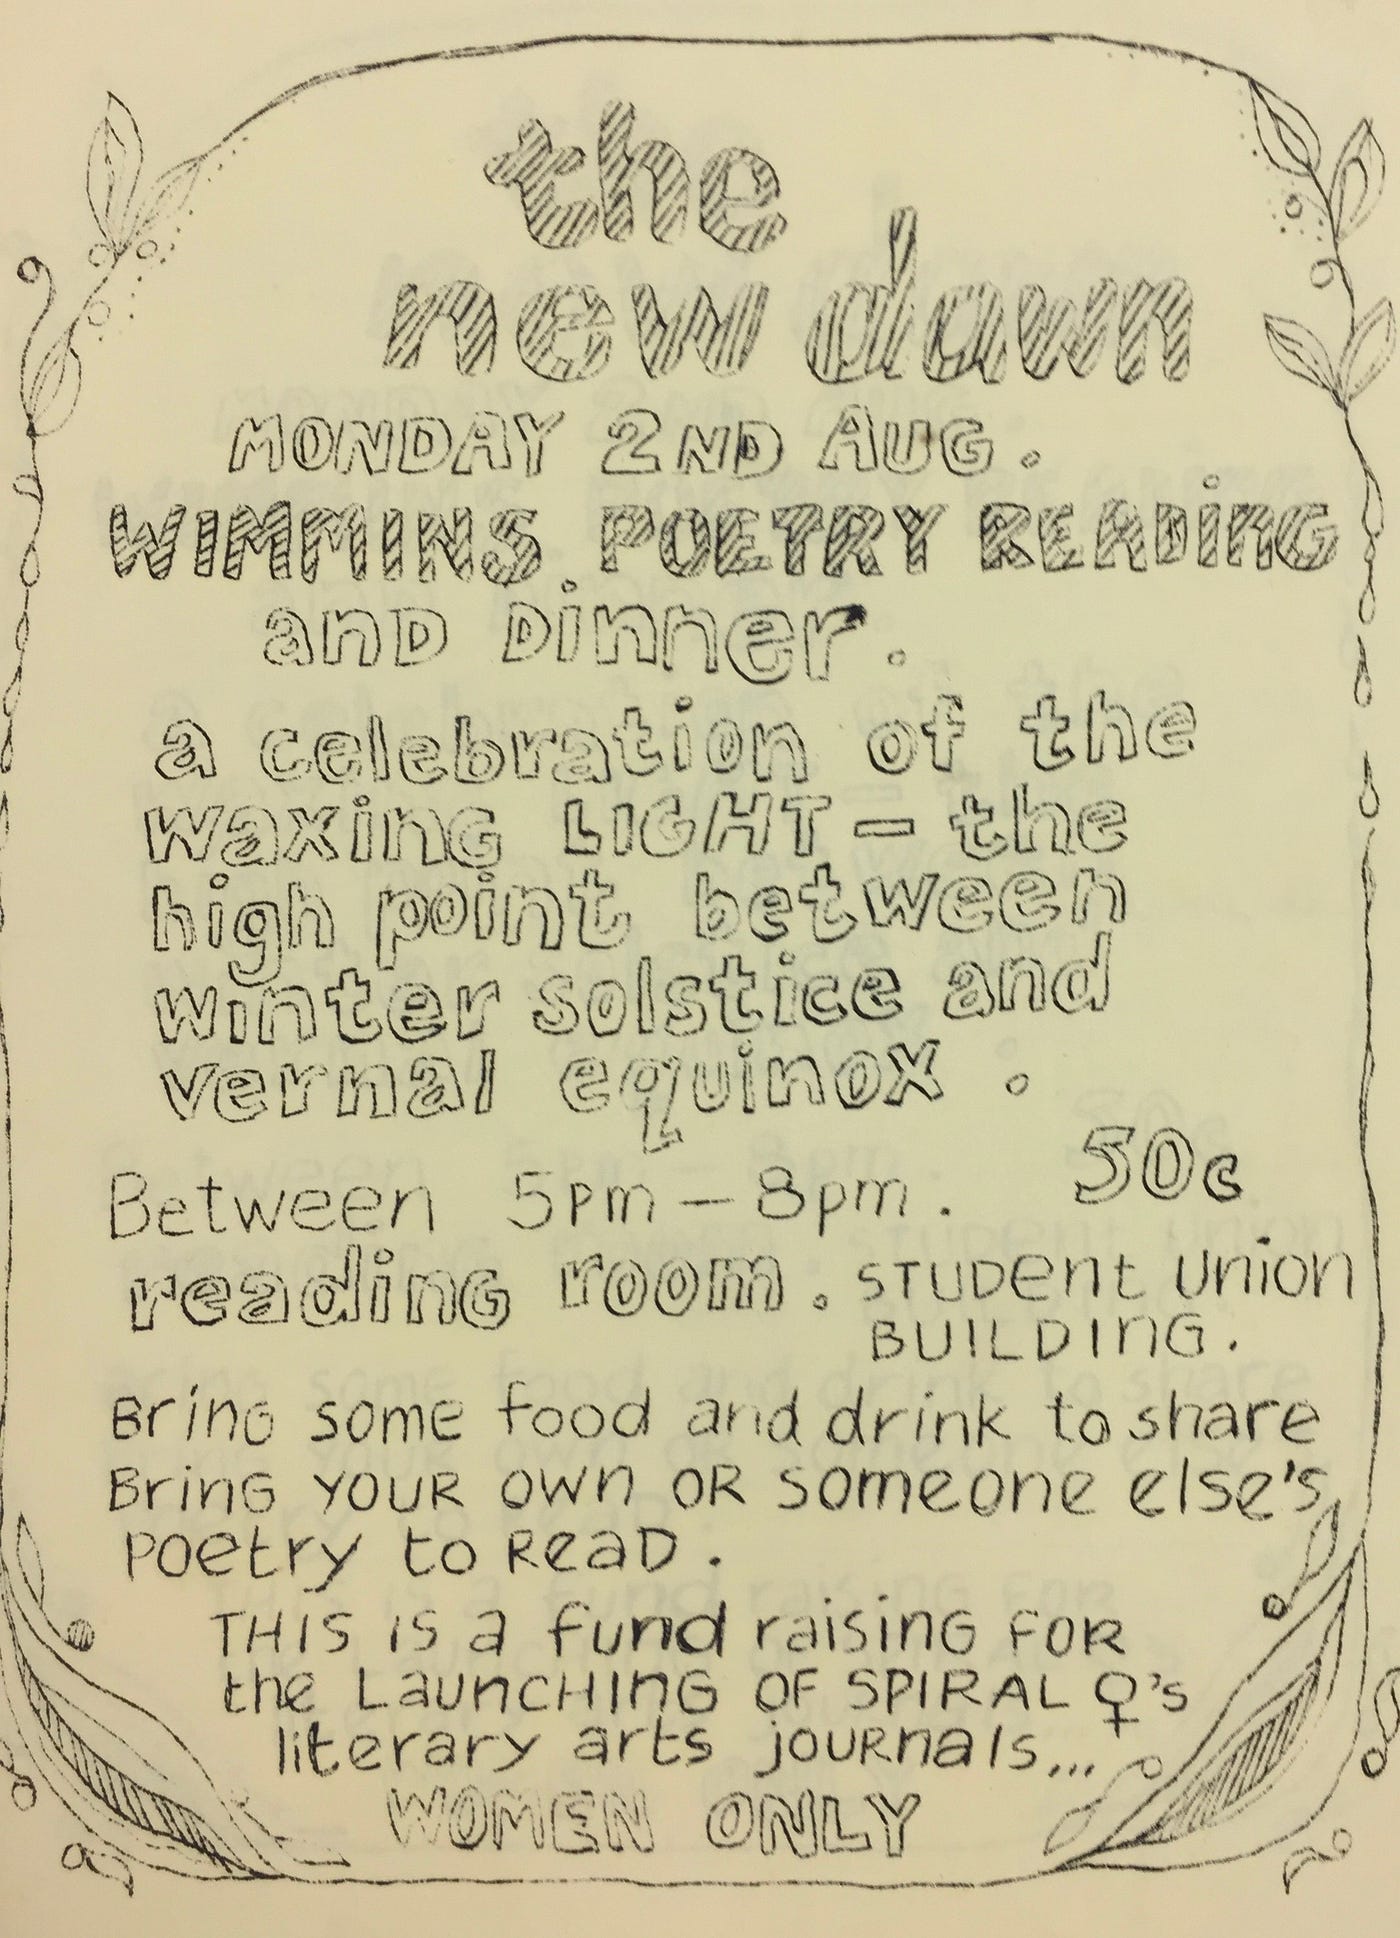 the
new dawn
MONDAY 2ND AUG.
WIMMINS. POETRY READiNG
anD Dinner.
a celebration of the
waxinG LIGHT - the
high point between
winter solstice and
vernal equinox.
50c
Between 5pm - 8pm.
readinG room. STUDent union
BUILDInG.
BrinG some food and drink to share
BrinG YOUR own OR someone else's
Poetry to ReaD.
THIS IS a fund raisinG FOR
the LaunCHInG OF SPIRAL ♀'s
literary arts journals...
WOMEN ONLY